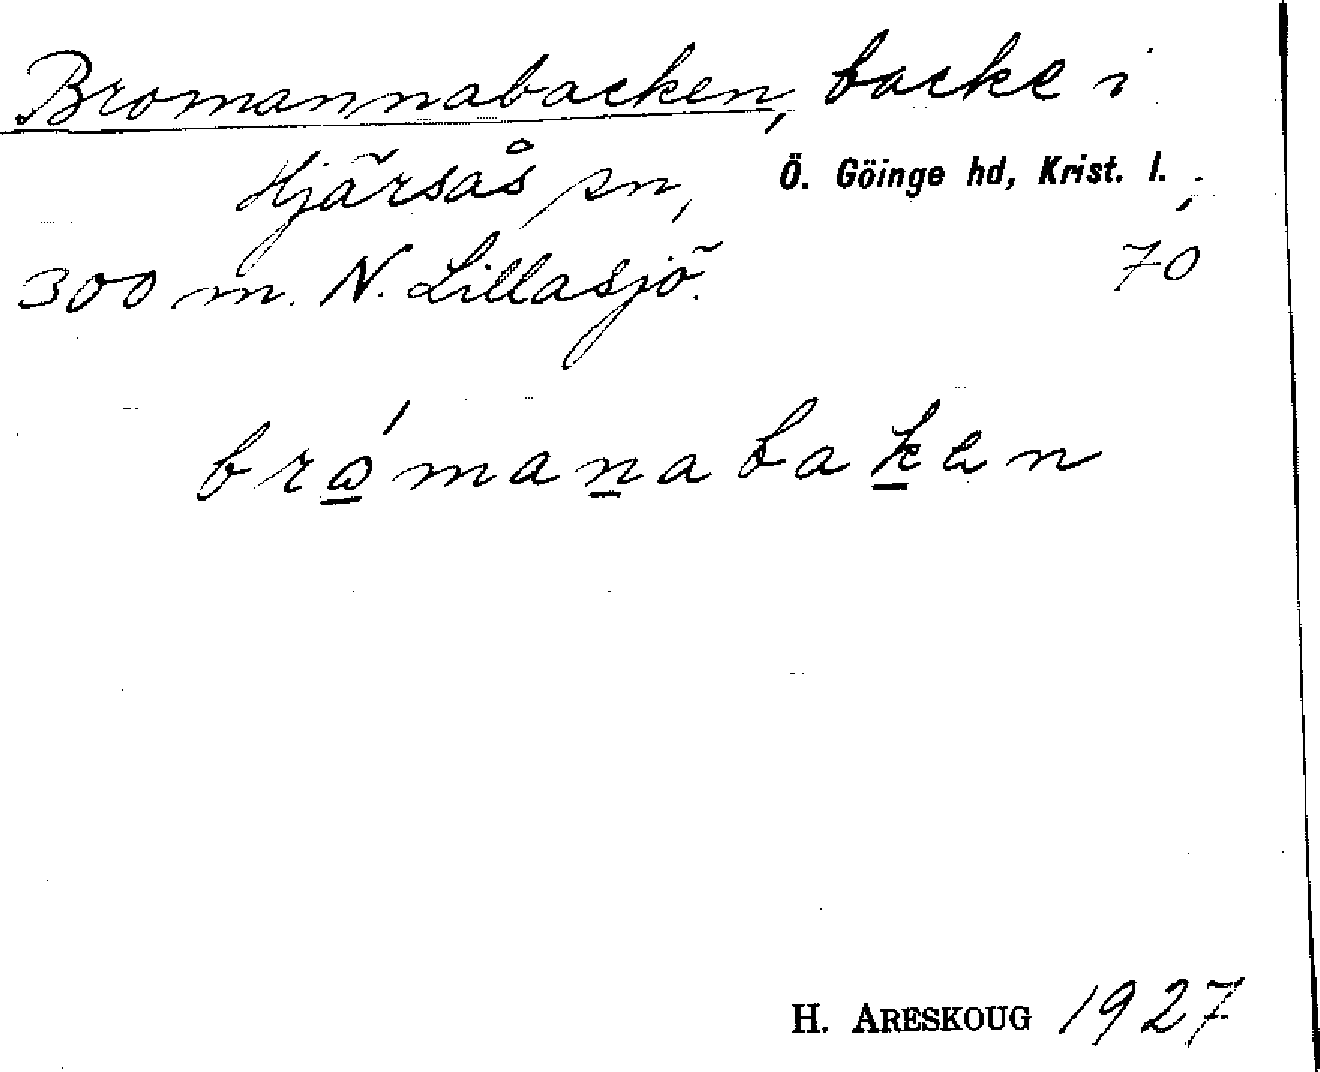 Bromannabacken, backe i
Hjärsås sn, Ö. Göinge hd, Krist. l.,
300 m. N. Lillasjö. 70
brómanabaken
H. ARESKOUG 1927